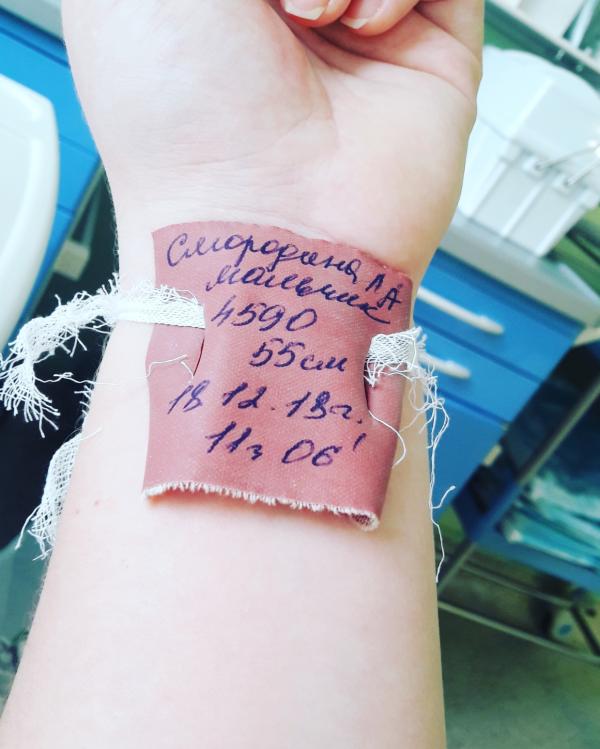 Смородина Л А
мальчик
4590
55см
18 12.18г.
11ч 06'